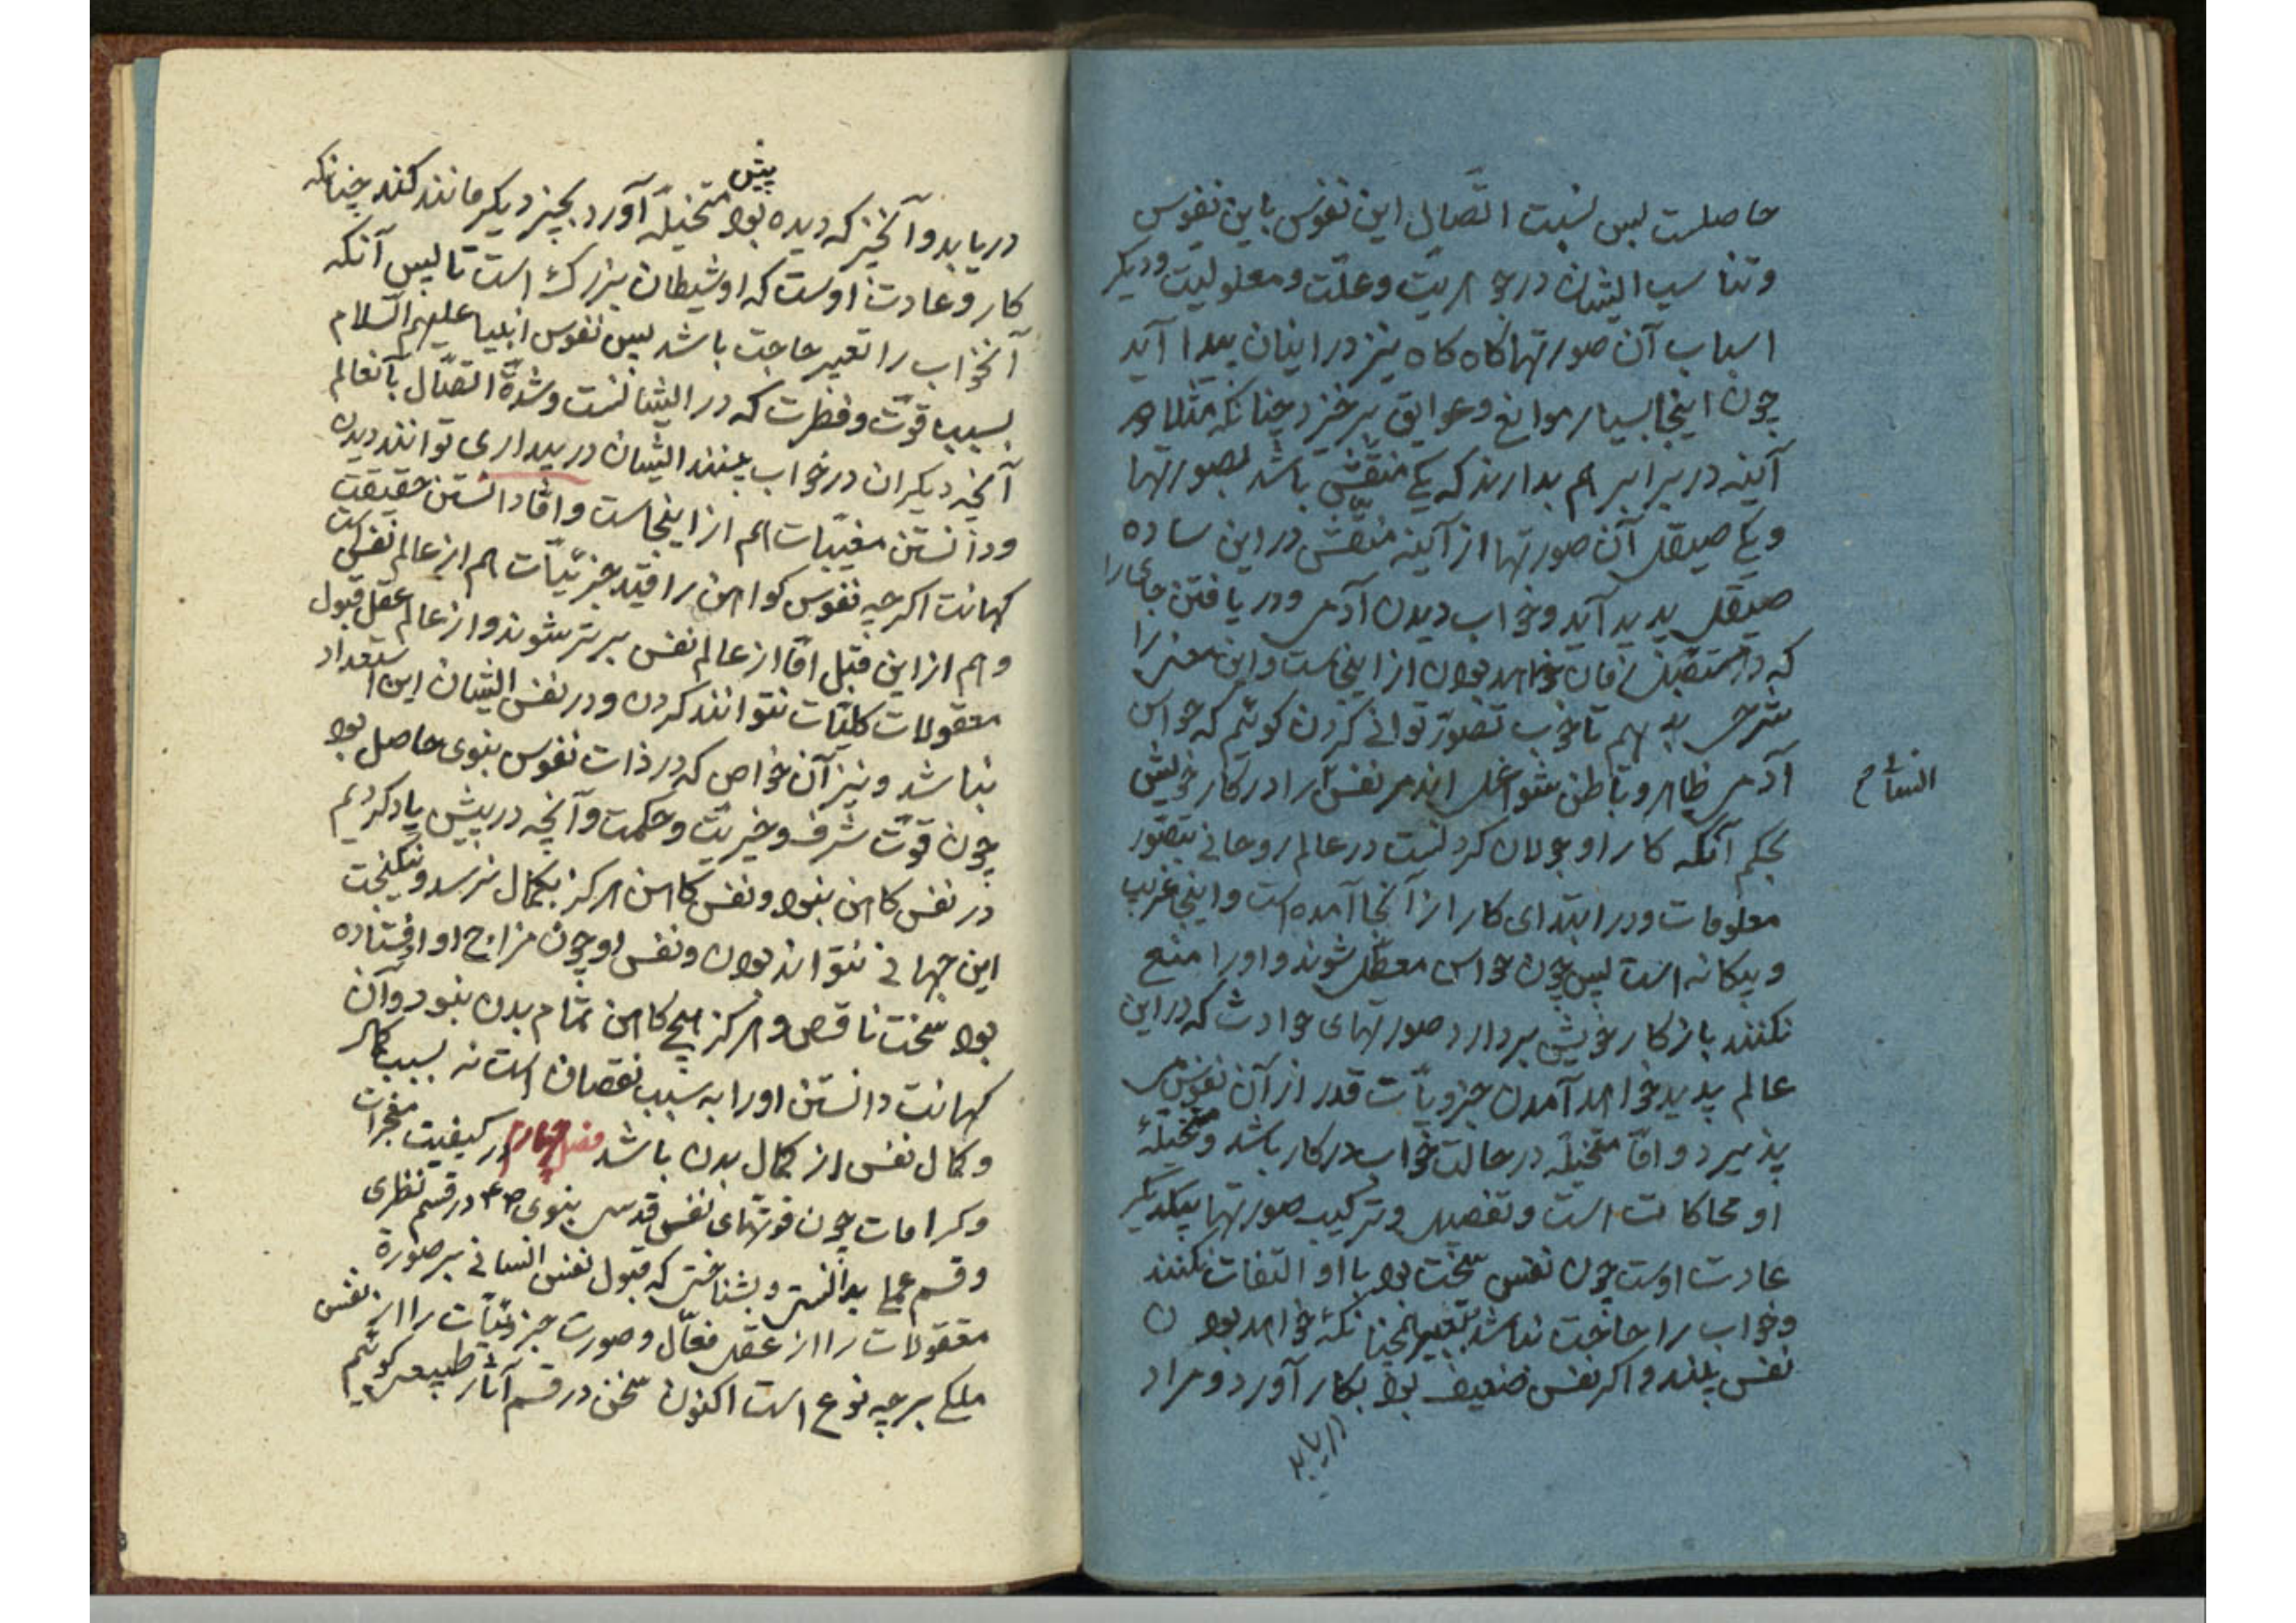 حاصلست پس نسبت اتّصال این نفوس باین نفوس
وتناسب ایشان در جوهریّت وعلّت ومعلولیّت ودیکر
اسباب آن صورتها کاه کاه نیز در اینان پیدا آید
چون اینجا بسیار موانع وعوایق برخیزد چنانکه مثلا هر
آینه در برابر هم بدارند که یکی منقّش باشد بصورتها
ویکی صیقل آن صورتها از آینه منقّش در این ساده
صیقل پدید آید وخواب دیدن آدمی ودر یافتن
که در مستقبل زمان خواهد بودن از اینجاست واین معنی را
شرحی بدهیم تا خوب تصوّر توانی کردن کوئیم که حواس
آدمی ظاهر وباطن شواغل اندمر نفس را در کار خویش
بحکم آنکه کار او جولان کردنست در عالم روحانی بتصوّر
معلومات ودر ابتدای کار از آنجا آمده است واینجا غریب
وبیکانه است پس چون حواس معطّل شوند واورا منع
نکنند باز کار خویش بردارد صورتهای حوادث که در این
عالم پدید خواهد آمدن جزویّات قدر از آن نفوس
پذیرد وامّا متخیّله در حالت خواب در کار باشد
او محاکات است وتفصیل وترکیب صورتها بیکدیکر
عادت اوست چون نفس سخت بود با او التفات نکنند
وخواب را حاجت نباشد بتعبیر همچنانکه خواهد بودن
نفس بیند واکر نفس ضعیف بود بکار آورد ومراد
دریابد
پیش
دریابد وآنچیز که دیده بود متخیّله آورد بچیز دیکر مانند کند چنانکه
کار وعادت اوست که او شیطان بزرک است تا پس آنکه
آنخواب را تعبیر حاجت باشد پس نفوس انبیا علیهم السّلام
بسبب قوّت وفطرت که در ایشانست وشدّة اتّصال بآنعالم
آنچه دیکران در خواب بینند ایشان در بیداری توانند دیدن
ودانستن مغیّبات هم از اینجاست وامّا دانستن حقیقت
کهانت اکرچه نفوس کواهن را قید جزئیّات هم از عالم نفس است
وهم از این قبل امّا از عالم نفس برتر شوند واز عالم عقل قبول
معقولات کلیّات نتوانند کردن ودر نفس ایشان این استعداد
نباشد ونیز آن خواص که در ذات نفوس نبوی حاصل بود
چون قوّت شرف وخیریّت وحکمت وآنچه در پیش یاد کردیم
در نفس کاهن نبود ونفس کاهن هرکز بکمال نرسد ونیکبخت
این جهانی نتواند بودن ونفس او چون مزاج او افتاده
بود سخت ناقص وهرکز هیچ کاهن تمام بدن نبود وآن
کهانت دانستن اورا به سبب نقصان است نه بسبب کمال
وکمال نفس از کمال بدن باشد فصل چهارم در کیفیت معجزات
وکرامات چون قوّتهای نفس قدسی نبوی ص در قسم نظری
وقسم عملی بدانستی وبشناختی که قبول نفس انسانی بر صورة
معقولات را از عقل فعّال وصورت جزئیّات را از نفس
ملکی بر چه نوع است اکنون سخن در قسم آثار طبیعی کوئیم